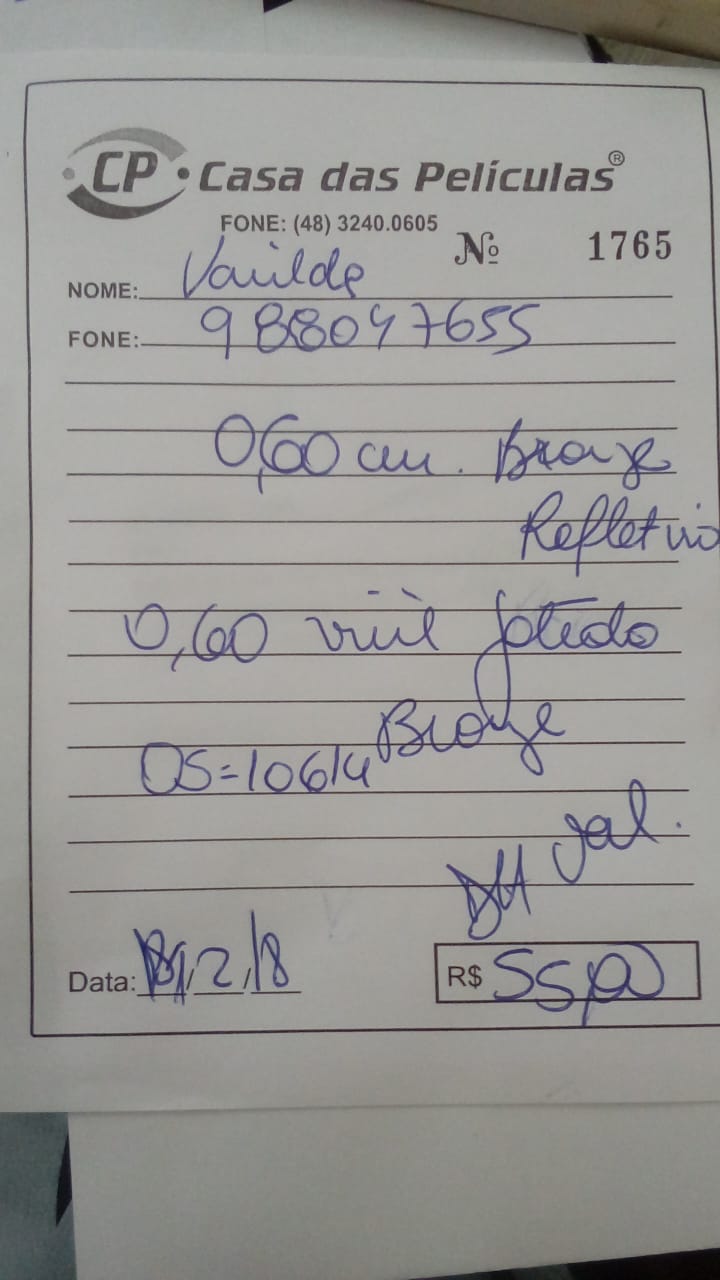 CP · Casa das Películas®
FONE: (48) 3240.0605
Nº 1765
NOME: Vanilda
FONE: 988047655
0,60 cm. Bronze
Refletivo
0,60 jateado
Bronze
OS=10614
Data: /2/18
R$ 55,00